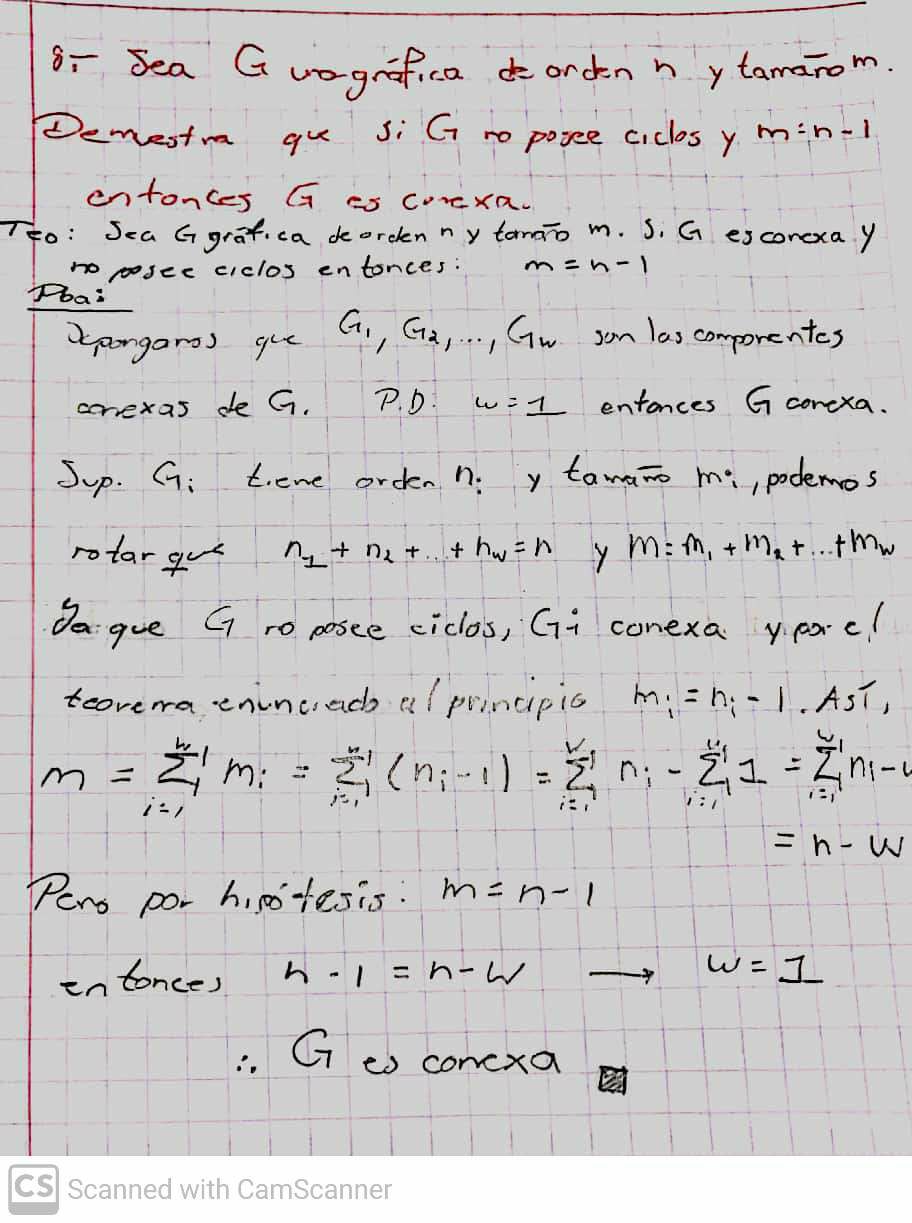 8.- Sea G una gráfica de orden n y tamaño m.
Demestra que si G no posee ciclos y m=n-1
entonces G es conexa.
Teo: Sea G gráfica de orden n y tamaño m. Si G es conexa y
no posee ciclos entonces: m=n-1
Pba:
Supongamos que G₁, G₂,..., Gw son las componentes
conexas de G. P.D. w=1 entonces G conexa.
Sup. Gi tiene orden ni y tamaño mi, podemos
notar que n₁ + n₂ + ... + nw = n y m = m₁ + m₂ + ... + mw
Ya que G no posee ciclos, Gi conexa y por el
teorema enunciado al principio mi = ni - 1. Así,
m = Σ_{i=1}^{w} mi = Σ_{i=1}^{w} (ni - 1) = Σ_{i=1}^{w} ni - Σ_{i=1}^{w} 1 = Σ_{i=1}^{w} ni - w
= n - w
Pero por hipótesis: m = n-1
entonces n-1 = n-w → w=1
∴ G es conexa
CS Scanned with CamScanner